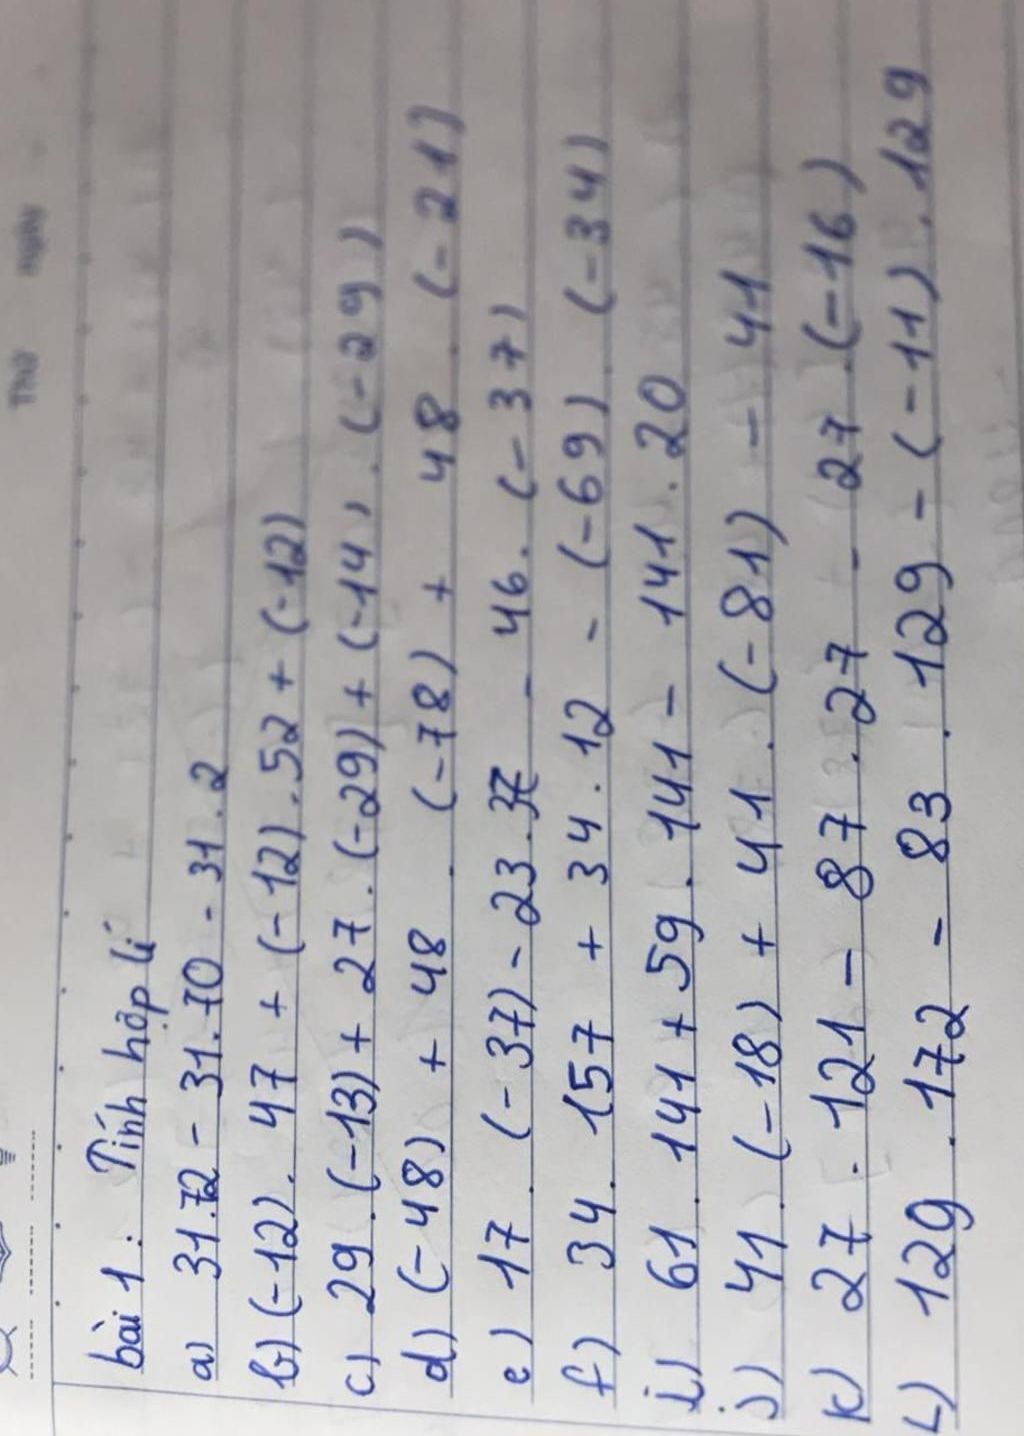 Thứ Ngày
bài 1: Tính hợp lí
a) 31.72 - 31.70 - 31.2
b) (-12). 47 + (-12).52 + (-12)
c) 29.(-13) + 27.(-29) + (-14).(-29)
d) (-48) + 48 . (-78) + 48 . (-21)
e) 17 . (-37) - 23.37 - 46.(-37)
f) 34. 157 + 34.12 - (-69).(-34)
i) 61 . 141 + 59 . 141 - 141.20
j) 41.(-18) + 41.(-81) - 41
k) 27 . 121 - 87.27 - 27.(-16)
L) 129 . 172 - 83 . 129 - (-11).129